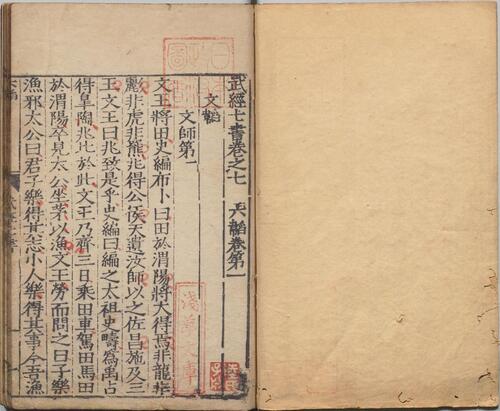 武經七書卷之七　六韜卷第一
文韜
文師第一
文王將田史編布卜曰田於渭陽將大得焉非龍非
彲非虎非羆兆得公侯天遺汝師以之佐昌施及三
王文王曰兆致是乎史編曰編之太祖史疇為禹占
得皐陶兆比於此文王乃齊三日乘田車駕田馬田
於渭陽卒見太公坐茅以漁文王勞而問之曰子樂
漁邪太公曰君子樂得其志小人樂得其事今吾漁
淺草文庫